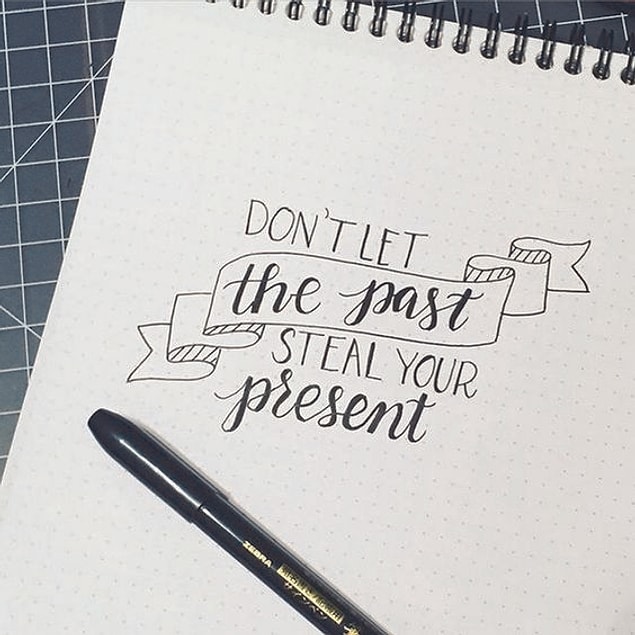 DON'T LET
the past
STEAL YOUR
present
ZEBRA